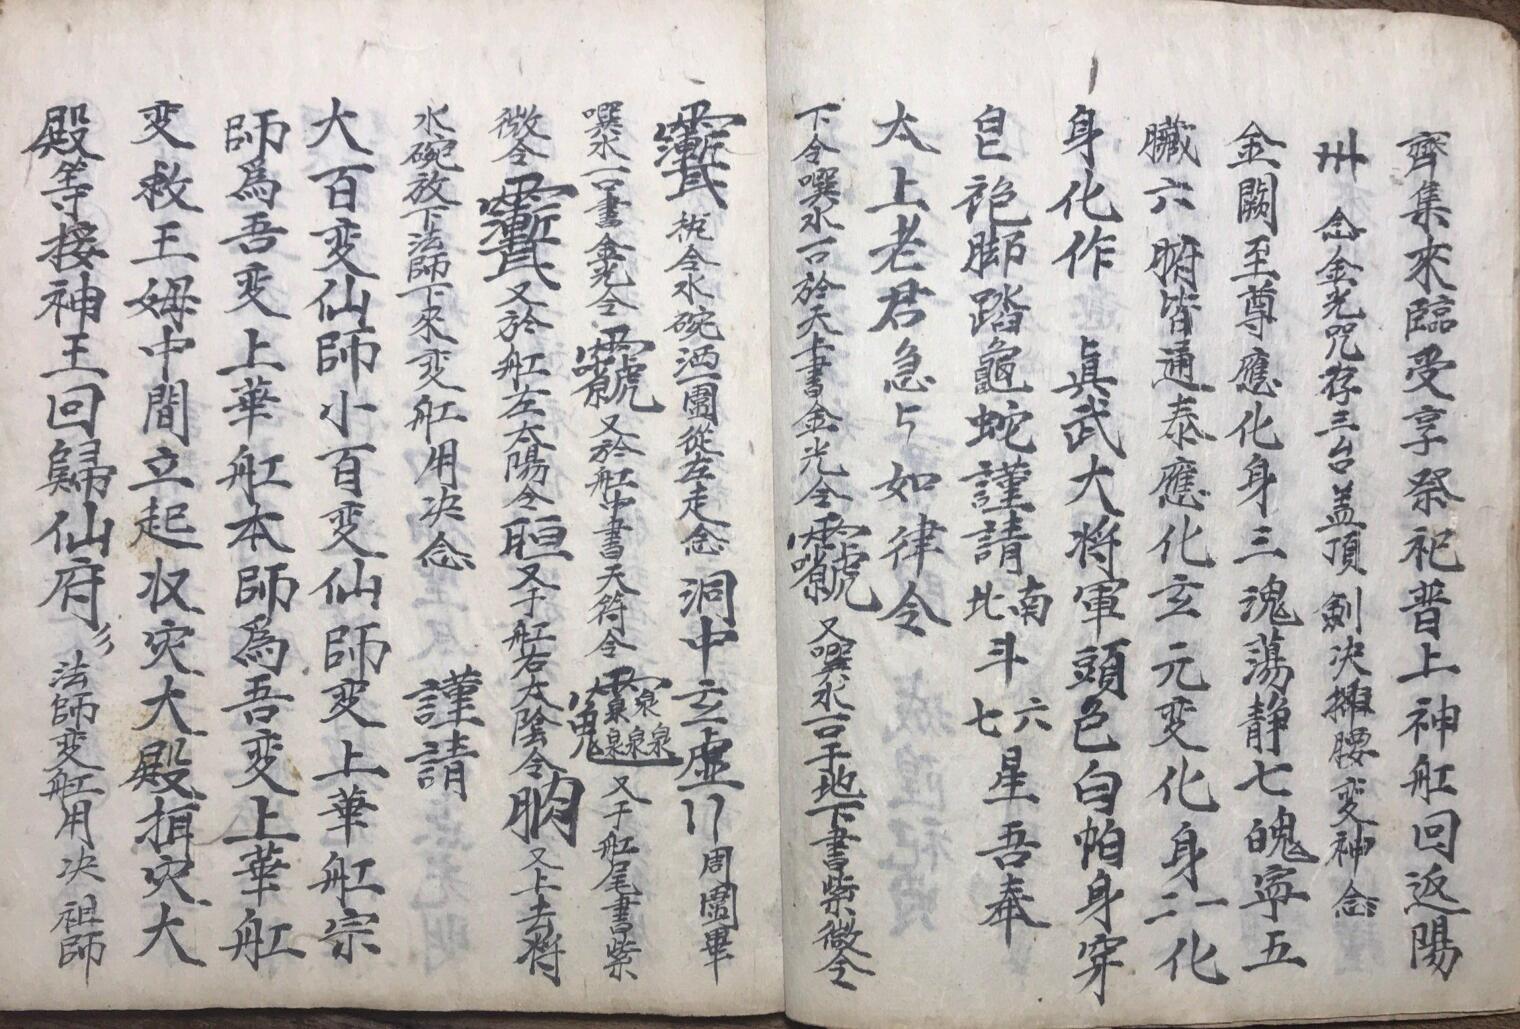 齊集來臨受享祭祀普上神舡回返陽
卅 念金光咒存三台盖頂 劍决 腰变神念
金闕至尊應化身三魂蕩靜七魄寧五
臟六腑皆通泰應化玄元变化身二一化
身化作 真武大將軍頭色白帕身穿
皀袍脚踏龜蛇謹請南北斗六七星吾奉
太上老君急々如律令
下令噀水一口於天上書金光令 又噀水一口于地下書紫微令
执令水碗洒一圍從左走念 洞中玄虛〻 周圍畢
噀水一口書金光令 又於舡中書天符令 又于舡尾書紫
微令 又於舡左太陽令 又于舡右太陰令 又上去將
水碗放下法師下來变舡用决念 謹請
大百变仙師小百变仙師变上華舡宗
師爲吾变上華舡本師爲吾变上華舡
变救王姆中間立起收灾大殿損灾大
殿等接神王回歸仙府〻 法師变舡用决 祖師